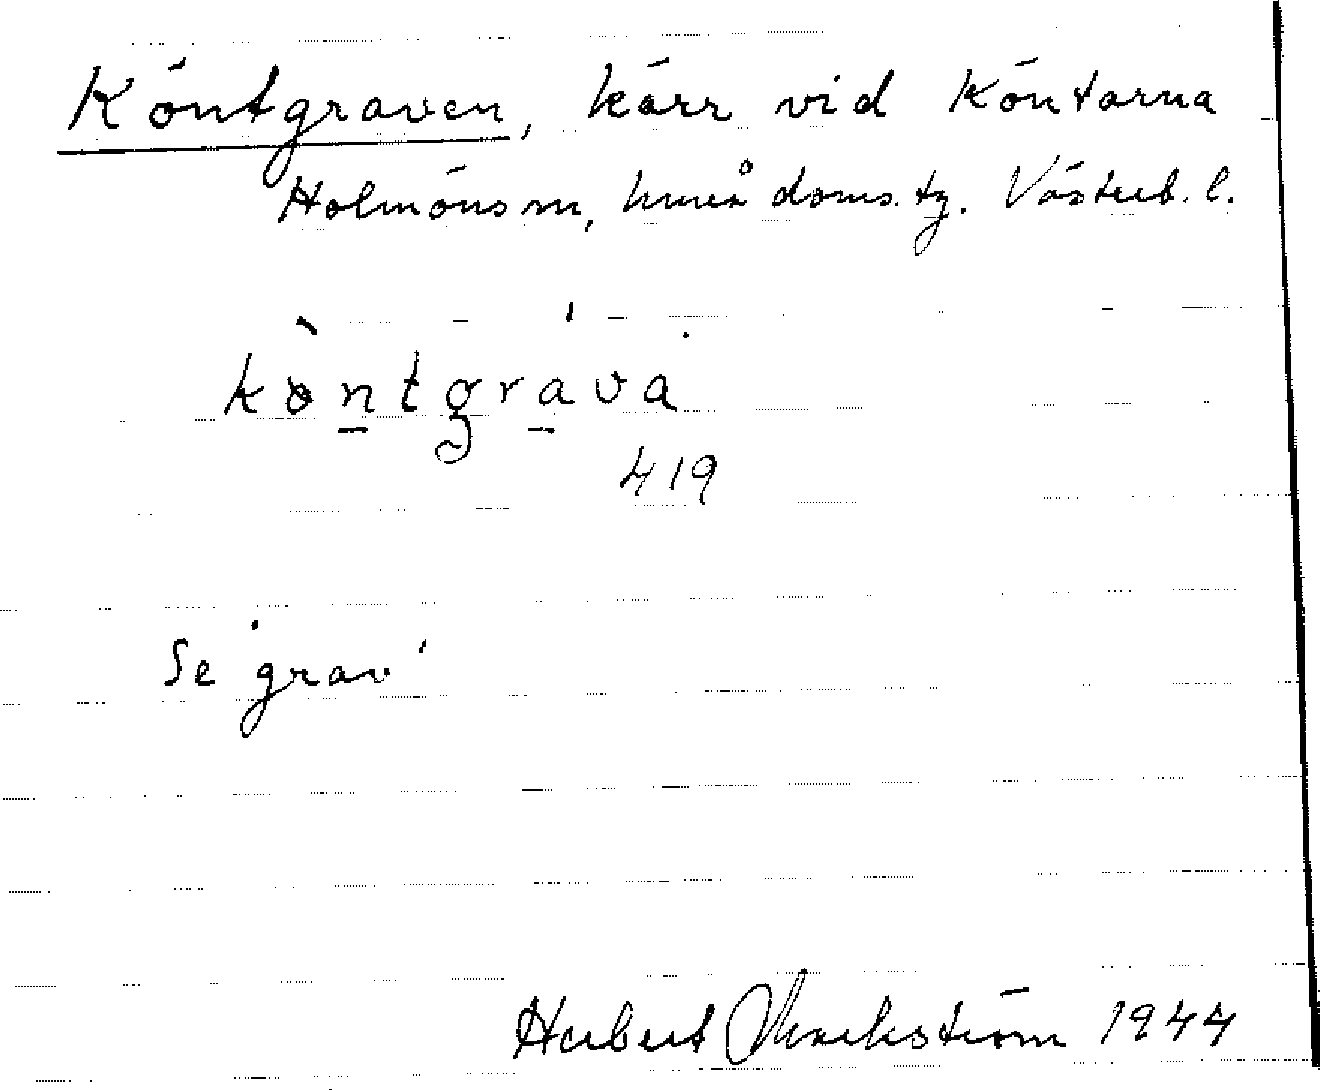 Köntgraven, kärr vid Köntarna
Holmöns sn, Umeå doms. tg. Västerb. l.
köntgrava
419
Se 'grav'
Herbert Markström 1944